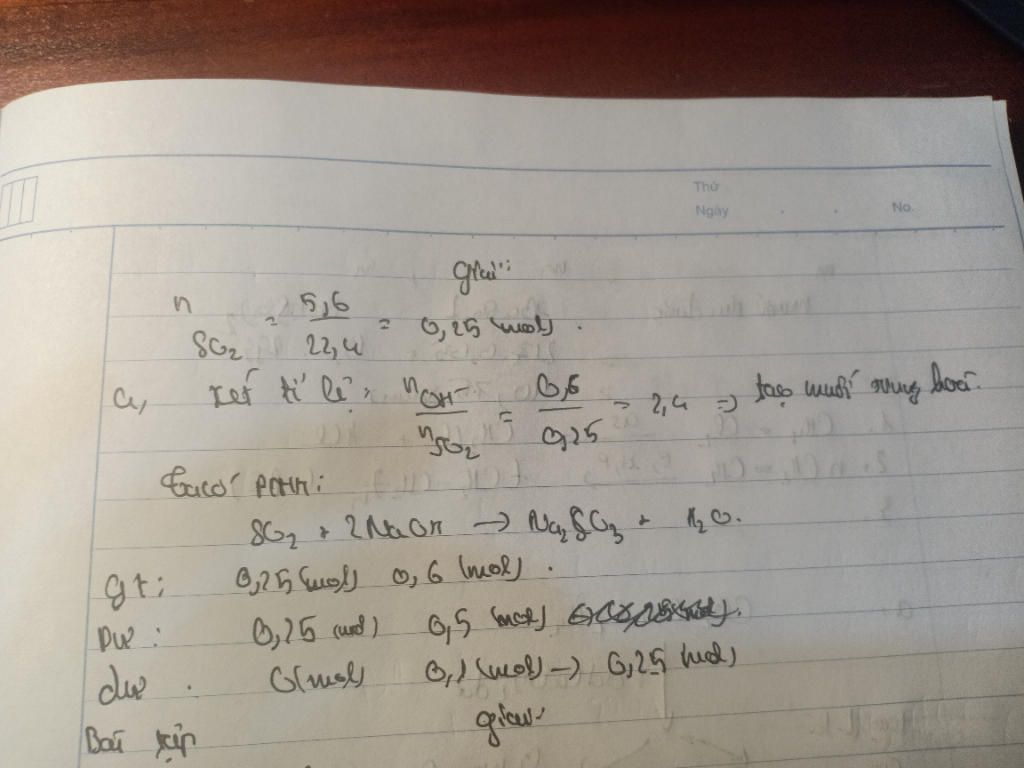 Thứ
Ngày . . No.
Giải:
n SO2 = 5,6 / 22,4 = 0,25 (mol).
a, Xét tỉ lệ: nOH- / nSO2 = 0,6 / 0,25 = 2,4 => tạo muối trung hoà.
Ta có PTHH:
SO2 + 2NaOH -> Na2SO3 + H2O.
gt: 0,25 (mol) 0,6 (mol).
pư: 0,25 (mol) 0,5 (mol)
dư: 0 (mol) 0,1 (mol) -> 0,25 (mol)
Bài tập
giải: